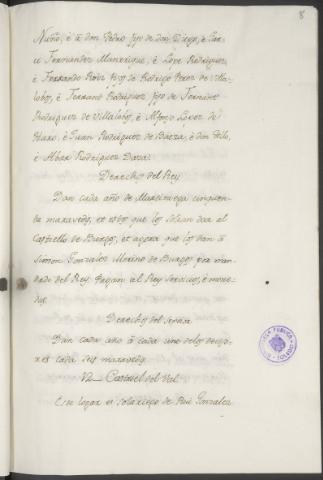 8
Nuño, è à don Pedro fijo de don Diego, è Gar-
ci Fernandez Manrique, è Lope Rodriguez,
è Ferrando Roiz fijo de Rodrigo Perez de Villa-
lobos, è Ferrand Rodriguez fijo de Fernand
Rodriguez de Villalobos, è Alfonso Lopez de
Haro, è Juan Rodriguez de Baeza, è don Tello,
è Alvar Rodriguez Daza.
Derechos del Rey
Dan cada año de Marciniega cinquen-
ta maravedis, et estos que los solian dar al
Castiello de Burgos, et agora que los dan à
Simon Gonzalez Merino de Burgos por man-
dado del Rey. Pagan al Rey servicios, è mone-
das.
Derechos del Señor
Dan cada año à cada uno de los devise-
ros cada seis maravedis.
Castriel del Val
Este logar es solariego de Rui Gonzalez
BIBLIOTECA PUBLICA
TOLEDO